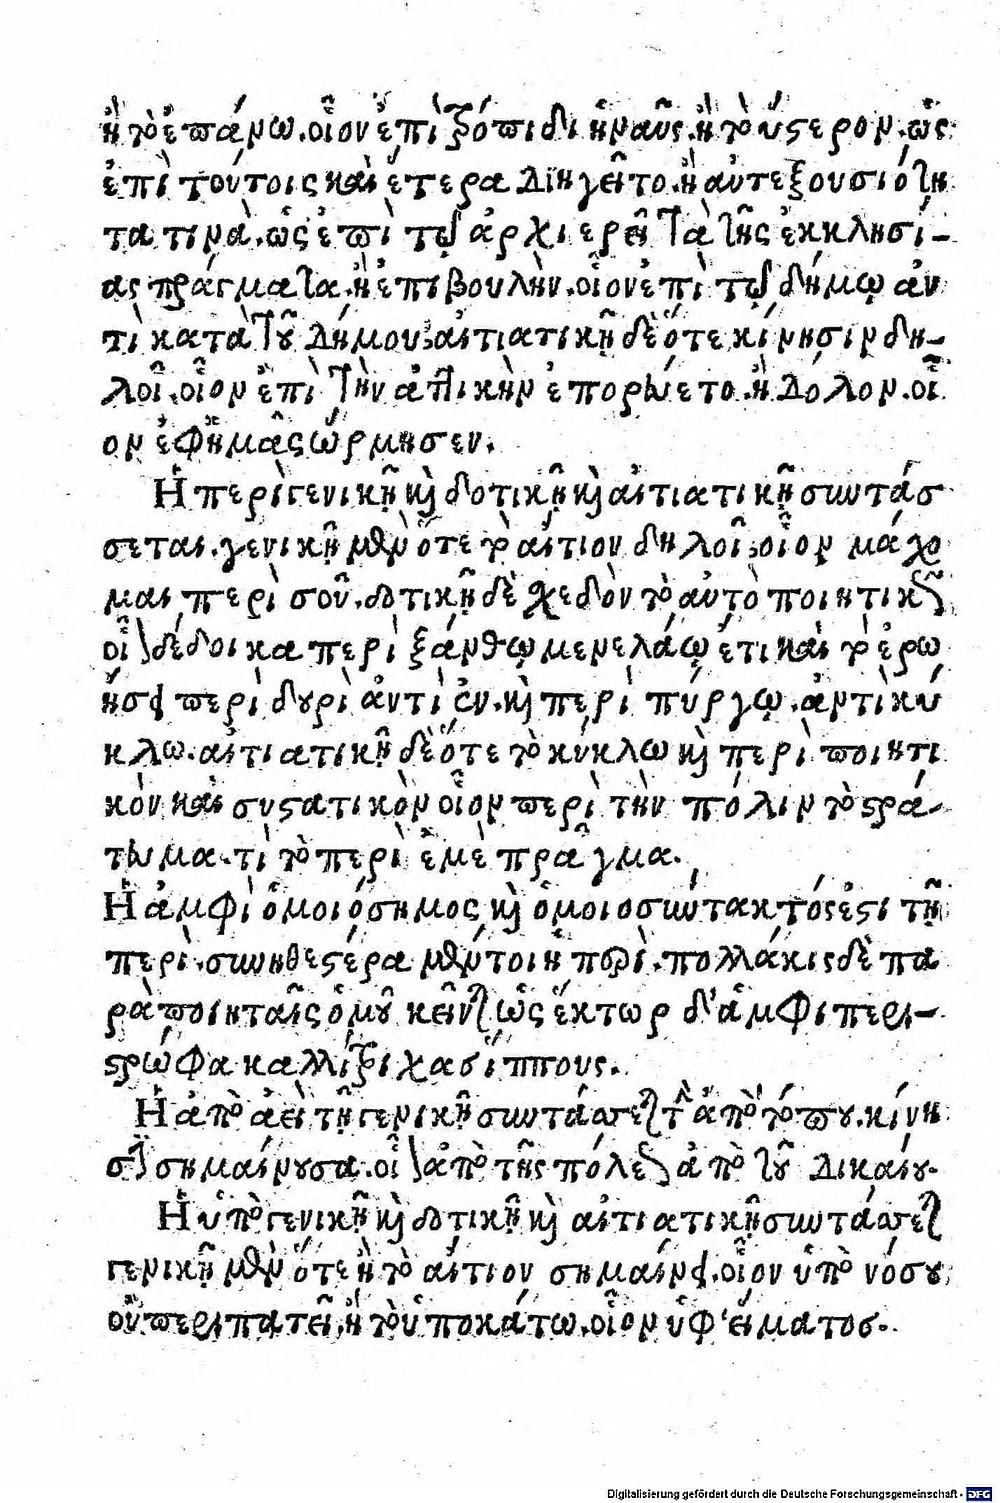 ἢ τὸ ἐπάνω. οἷον ἐπὶ ξόπιδι ἡμᾶς. ἢ τὸ ὕστερον. ὡς
ἐπὶ τούτοις καὶ ἕτερα διηγεῖτο. ἢ αὐτεξουσιότη
τα τινὰ. ὡς ἐπὶ τῷ ἀρχιερεῖ τὰ τῆς ἐκκλησί-
ας πράγματα. ἢ ἐπιβουλὴν. οἷον ἐπὶ τῷ δήμῳ ἀν
τὶ κατὰ τοῦ δήμου. αἰτιατικῇ δὲ ὅτε κίνησιν δη-
λοῖ. οἷον ἐπὶ τὴν ἀττικὴν ἐπορεύετο. ἢ δόλον. οἷ
ον ἐφ' ἡμᾶς ὥρμησεν.
Ἡ περὶ γενικῇ καὶ δοτικῇ καὶ αἰτιατικῇ συντάσ
σεται. γενικῇ μὲν ὅτε τὸ αἴτιον δηλοῖ. οἷον μάχο
μαι περὶ σοῦ. δοτικῇ δὲ σχεδὸν τὸ αὐτὸ ποιητικῶς
οἷον δέδοικα περὶ ξάνθῳ μενελάῳ ἔτι καὶ τὸ ἔρω
ήσει περὶ δουρὶ ἀντὶ ἐν. καὶ περὶ πύργῳ. ἀντὶ κύ
κλω. αἰτιατικῇ δὲ ὅτε τὸ κύκλω καὶ περιποιητι
κὸν καὶ συστατικὸν οἷον περὶ τὴν πόλιν τὸ στρά-
τευμα. τὶ τὸ περὶ ἐμὲ πρᾶγμα.
Ἡ ἀμφὶ ὁμοιόσημος καὶ ὁμοιοσύντακτός ἐστι τῇ
περὶ. συνηθεστέρα μέντοι ἡ περὶ. πολλάκις δὲ πα
ρὰ ποιηταῖς ὁμοῦ κεῖνται ὡς ἕκτωρ δ' ἀμφιπερι-
στρώφα καλλίτριχας ἵππους.
Ἡ ἀπὸ ἀεὶ τῇ γενικῇ συντάσσεται τὴν ἀπὸ τόπου. κίνη
σιν σημαίνουσα. οἷον ἀπὸ τῆς πόλεως ἀπὸ τοῦ δικαίου.
Ἡ ὑπὸ γενικῇ καὶ δοτικῇ καὶ αἰτιατικῇ συντάσσεται
γενικῇ μὲν ὅτε ἢ τὸ αἴτιον σημαίνει. οἷον ὑπὸ νόσου
οὐ περιπατεῖ. ἢ τὸ ὑποκάτω. οἷον ὑφ' εἵματος.
Digitalisierung gefördert durch die Deutsche Forschungsgemeinschaft - DFG